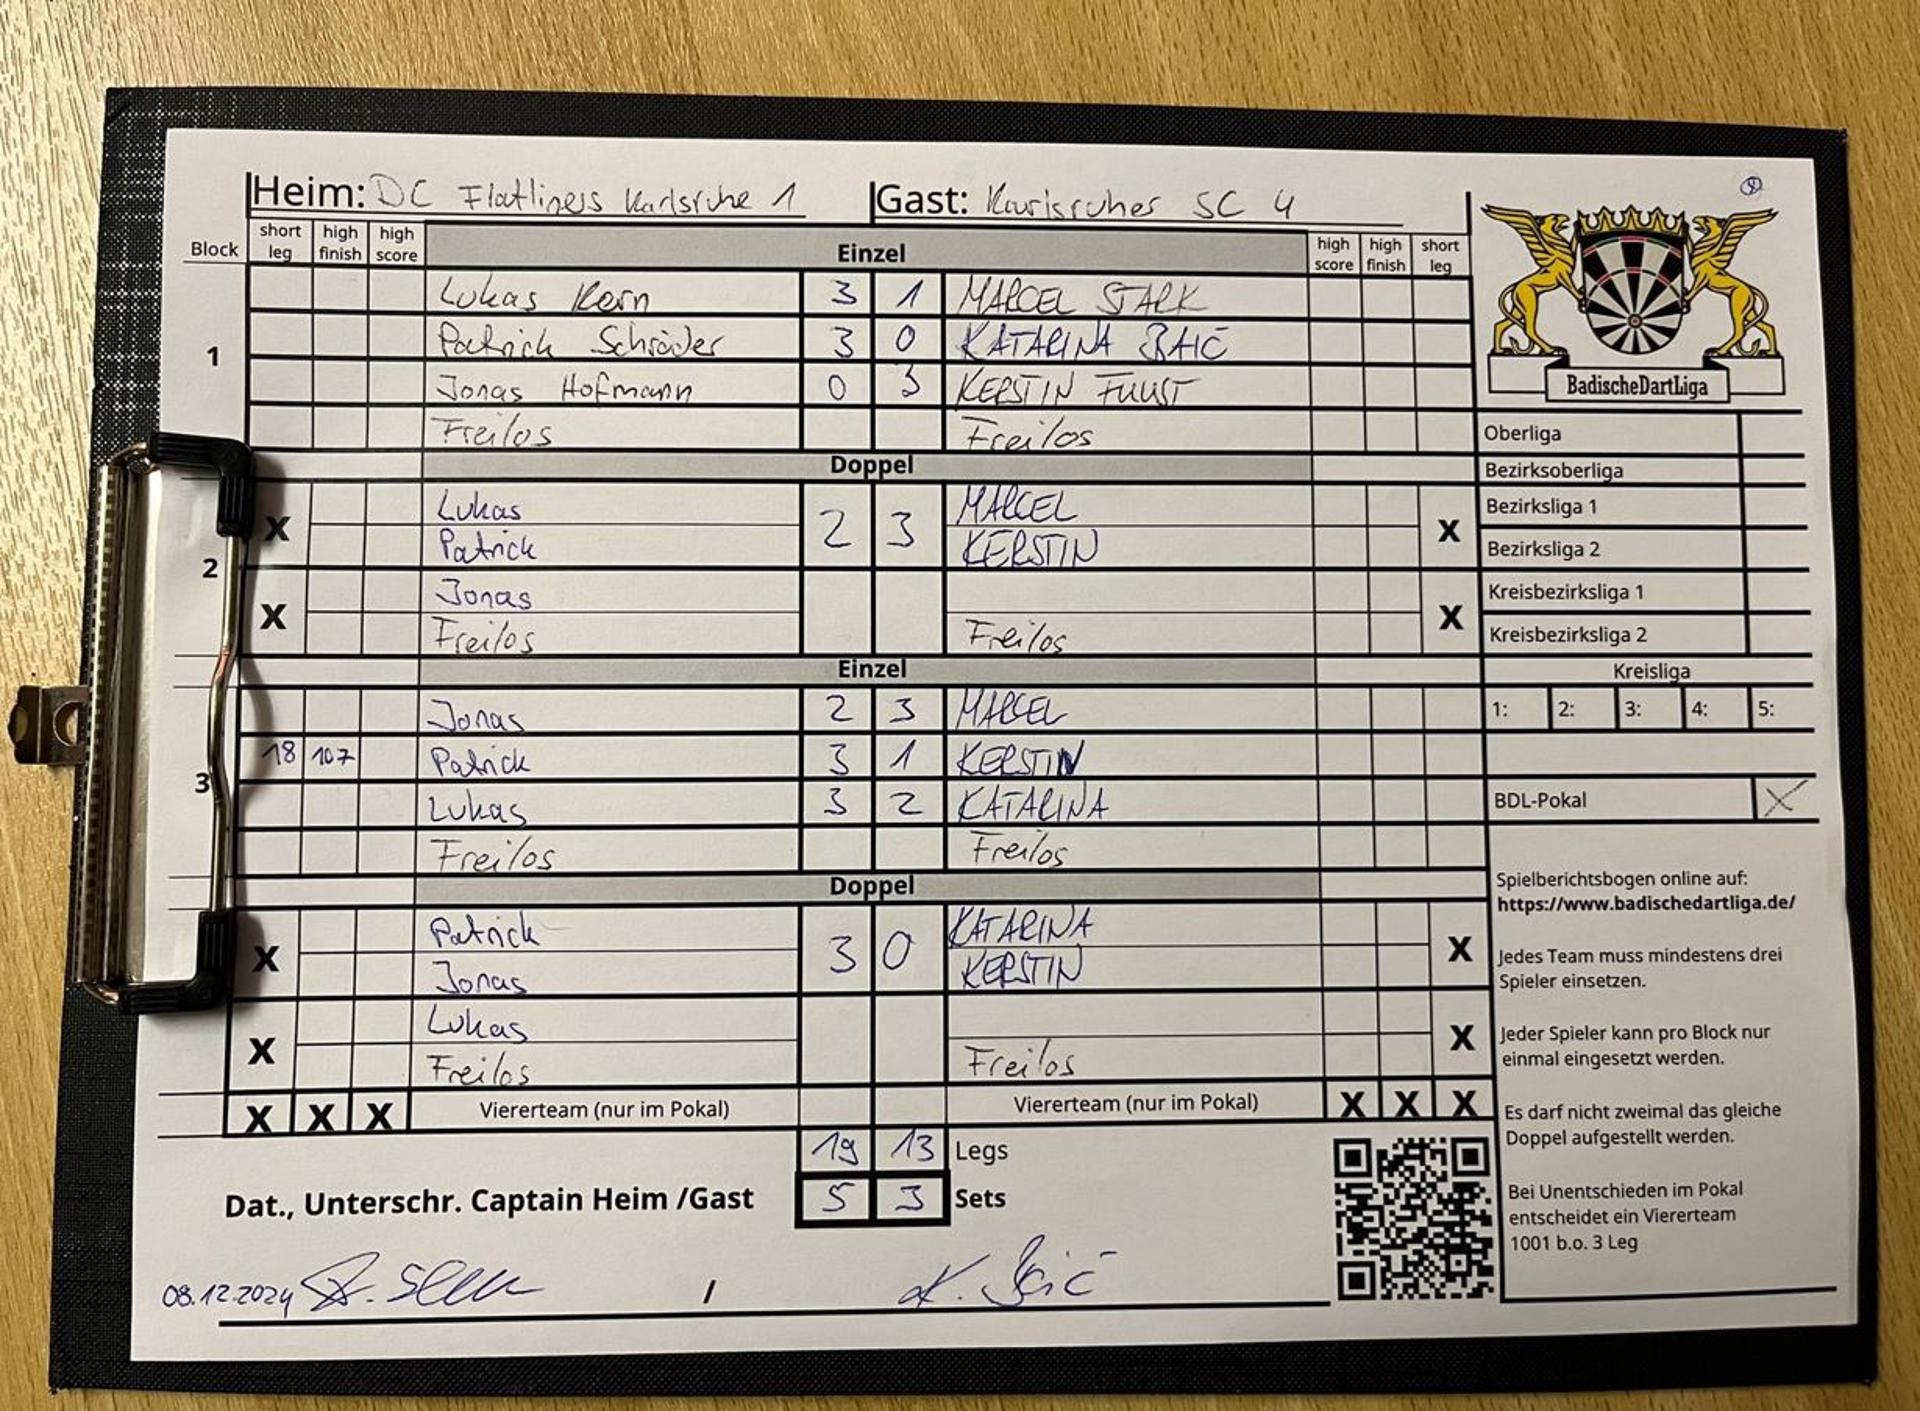 Heim: DC Flatliners Karlsruhe 1 Gast: Karlsruher SC 4
Block short leg high finish high score Einzel high score high finish short leg
1
Lukas Kern 3 1 MARCEL STARK
Patrick Schröder 3 0 KATARINA BAIĆ
Jonas Hofmann 0 3 KERSTIN
Freilos Freilos
Doppel
2
X Lukas 2 3 MARCEL X
Patrick KERSTIN
X Jonas X
Freilos Freilos
Einzel
3
Jonas 2 3 MARCEL
18 107 Patrick 3 1 KERSTIN
Lukas 3 2 KATARINA
Freilos Freilos
Doppel
X Patrick 3 0 KATARINA X
Jonas KERSTIN
X Lukas X
Freilos Freilos
X X X Viererteam (nur im Pokal) Viererteam (nur im Pokal) X X X
19 13 Legs
Dat., Unterschr. Captain Heim /Gast 5 3 Sets
08.12.2024 / K. Baić
BadischeDartLiga
Oberliga
Bezirksoberliga
Bezirksliga 1
Bezirksliga 2
Kreisbezirksliga 1
Kreisbezirksliga 2
Kreisliga
1: 2: 3: 4: 5:
BDL-Pokal X
Spielberichtsbogen online auf:
https://www.badischedartliga.de/
Jedes Team muss mindestens drei
Spieler einsetzen.
Jeder Spieler kann pro Block nur
einmal eingesetzt werden.
Es darf nicht zweimal das gleiche
Doppel aufgestellt werden.
Bei Unentschieden im Pokal
entscheidet ein Viererteam
1001 b.o. 3 Leg